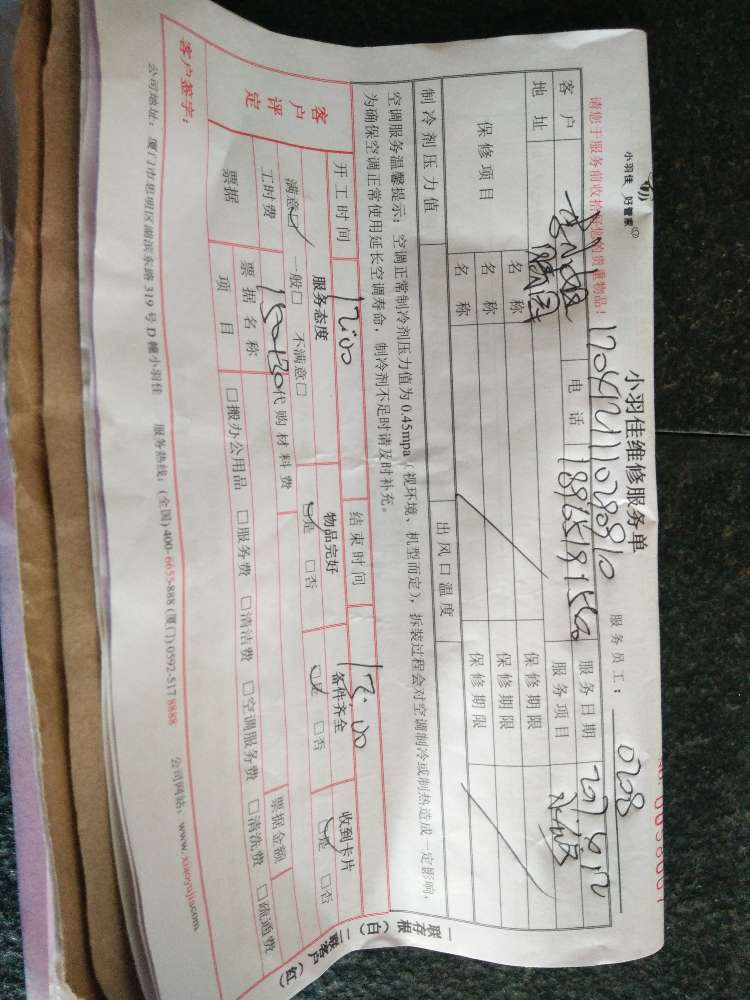 小羽佳 好管家
小羽佳维修服务单
服务员工： 0208
请您于服务前收拾好您的贵重物品！
客户 电话 服务日期
地址 服务项目
保修项目 名称 保修期限
名称 保修期限
名称 保修期限
制冷剂压力值 出风口温度
空调服务温馨提示：空调正常制冷剂压力值为0.45mpa（视环境、机型而定），拆装过程会对空调制冷或制热造成一定影响，
为确保空调正常使用延长空调寿命，制冷剂不足时请及时补充。
客户评定 开工时间 12:00 结束时间
服务态度 物品完好 备件齐全 收到卡片
满意☑ 一般□ 不满意□ ☑是 □否 ☑是 □否 ☑是 □否
工时费 代购材料费
票据 票据名称 票据金额
项目 □搬办公用品 □服务费 □清洁费 □空调服务费 □清洗费 □疏通费
客户签字：
公司地址：厦门市思明区湖滨东路319号D幢小羽佳 服务热线：(全国)400-6655-888 (厦门)0592-517 8888 公司网站：www.xiaoyujia.com
一联存根（白） 二联客户（红）